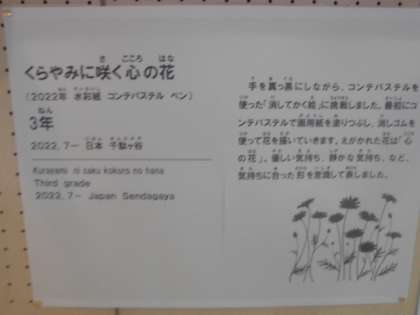 くらやみに咲く心の花
(2022年 水彩紙 コンテパステル ペン)
3年
2022.7ー 日本 千駄ヶ谷
Kurayami ni saku kokoro no hana
Third grade
2022. 7 - Japan Sendagaya
手を真っ黒にしながら、コンテパステルを
使った「消してかく絵」に挑戦しました。最初にコ
ンテパステルで画用紙を塗りつぶし、消しゴムを
使って花を描いていきます。えがかれた花は「心
の花」。優しい気持ち、静かな気持ち、など、
気持ちに合った形を意識して表しました。